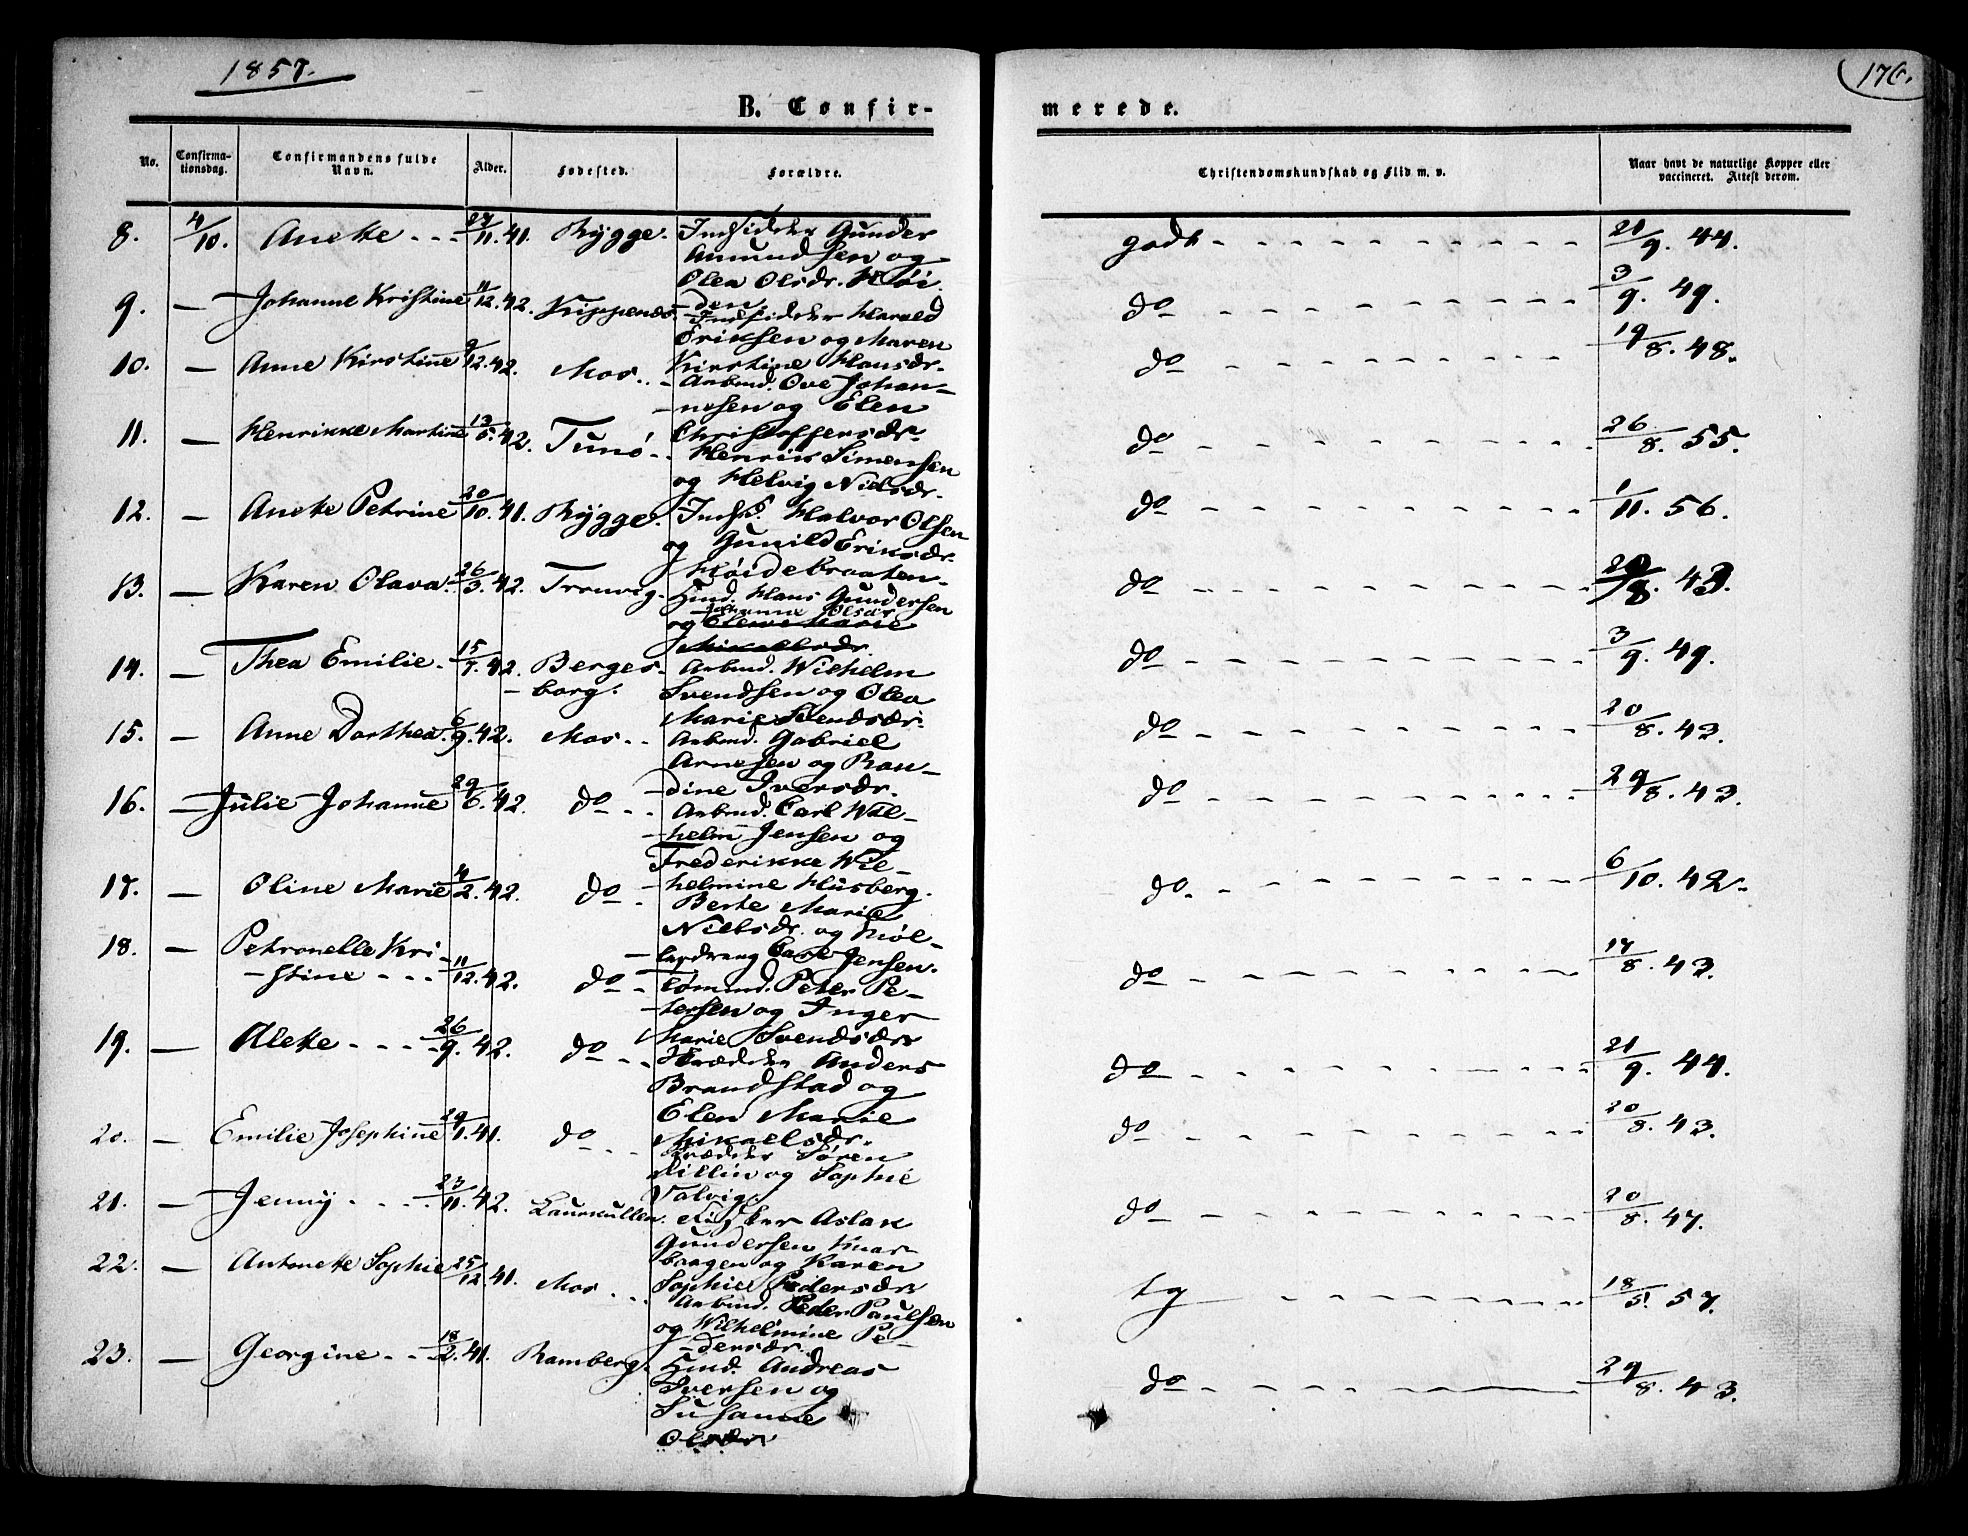 1857.
176.
B. Confir-
merede.
No. Confirmationsdag. Confirmandens fulde Navn. Alder. Fødested. Forældre. Christendomskundskab og Flid m. v. Naar havt de naturlige Kopper eller vaccineret. Attest derom.
8. 4/10. Anette 27/11. 41. Rygge. Indsidder Gunder godt 21/9. 44.
Amundsen og
Olea Olsdr. Høi
9. — Johanne Kristine 11/12. 42. Krippenes -den. do 3/9. 49.
Indsidder Harald
Eriksen og Maren
10. — Anne Kirstine 9/12. 42. Mos Kirstine Hansdr. do 19/8. 48.
Arbmd. Ove Johan-
nesen og Elen
11. — Henrikke Martine 13/5. 42. Tunø Christoffersdr. do 26/8. 55.
Henrik Simensen
og Helvig Nielsdr.
12. — Anette Petrine 20/10. 41. Rygge. Indsd. Halvor Olsen do 1/11. 56.
og Gunild Eriksdr.
Høidebraaten
13. — Karen Olava 26/3. 42. Tronvig. Hmd. Hans Gundersen do /8. 43.
Johanne Olsdr.
og Elene Marie
Mikaelsdr.
14. — Thea Emilie 15/7. 42. Berges- Arbmd. Wilhelm do 3/9. 49.
borg. Svendsen og Olea
Marie Svendsdr.
15. — Anne Dorthea 6/9. 42. Mos Arbmd. Gabriel do 20/8. 43.
Arnesen og Ran-
dine Iversdr.
16. — Julie Johanne 29/6. 42. do Arbmd. Carl Wil- do 29/8. 43.
helm Jensen og
Frederikke Wil-
helmine Husberg.
17. — Oline Marie 4/2. 42. do Berte Marie do 6/10. 42.
Nielsdr. og Møl-
lerdreng Carl Jensen.
18. — Petronelle Kri- do 17/8. 43.
stine 11/12. 42. do Tømmd. Peter Pe-
tersen og Inger
Marie Svendsdr
19. — Alette 26/9. 42. do Skrædder Anders do 21/9. 44.
Brandstad og
Elen Marie
Mikaelsdr.
20. — Emilie Josephine 29/1. 41. do Skrædder Søren do 20/8. 43.
Killin og Sophie
Valvig.
21. — Jenny 23/11. 42. Laurkullen. Fisker Aslak do 20/8. 47.
Gundersen Knar-
baagen og Karen
Sophie Pedersdr
22. — Antonette Sophie 25/12. 41. Mos Arbmd. Peder Paulsen tg 18/5. 57.
og Wilhelmine Pe-
dersdr.
23. — Georgine 18/2. 41. Ramberg. Hmd. Andreas do 29/8. 43.
Iversen og
Susanne
Olsdr